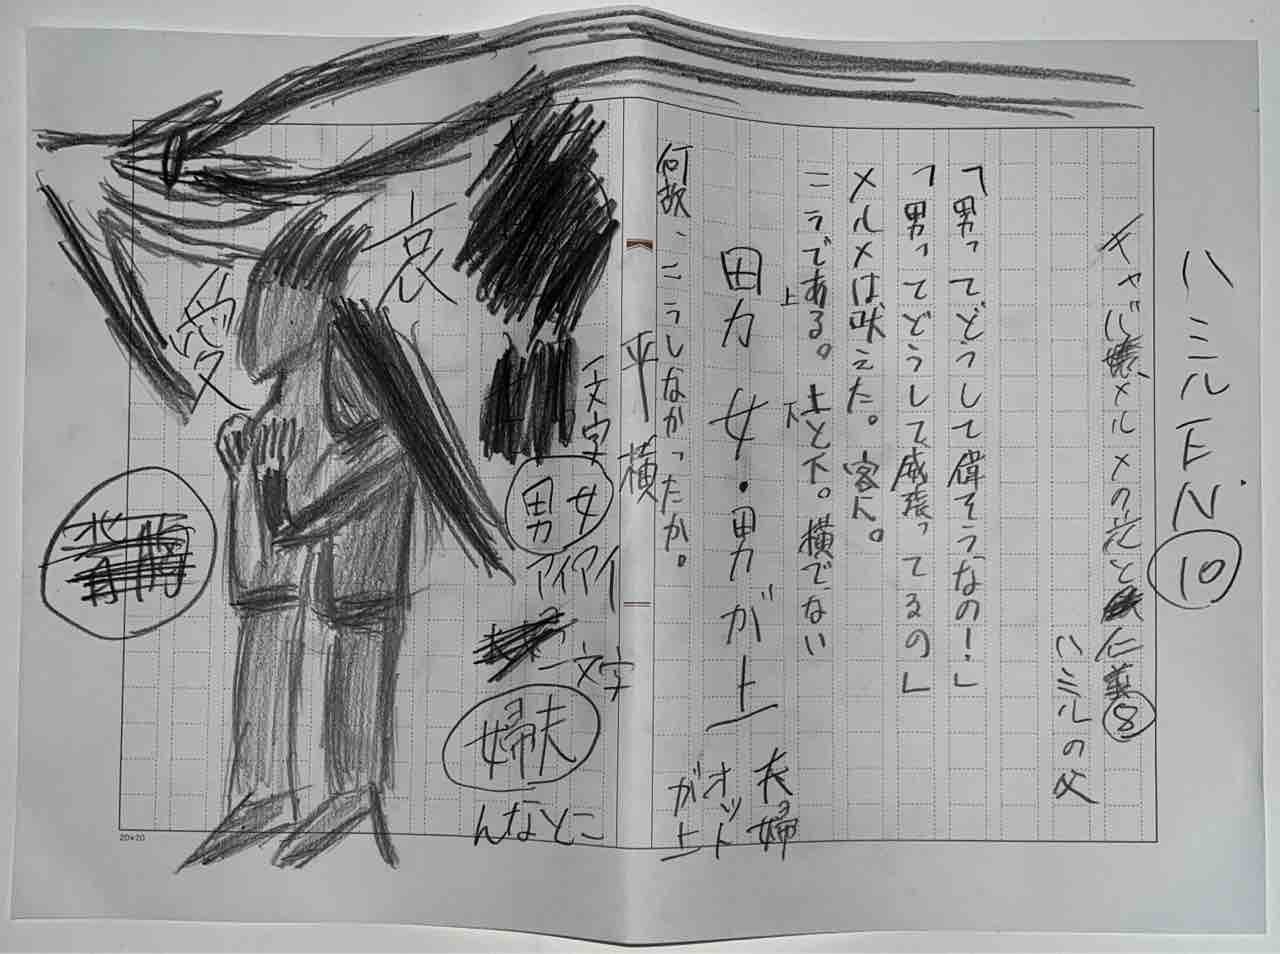 ハミルEN.⑩
キャバ嬢メルメの恋と仁義⑧
ハミルの父
「男ってどうして偉そうなの!」
「男ってどうして威張ってるの」
メルメは吠えた。客に。
こうである。上と下。横でない
上 下
男 女・男が上
夫婦
オットが上
何故、こうしなかったか。
平横
一文字
男女
アイアイ
一文字
婦夫
んなとこ
哀
愛
20×20